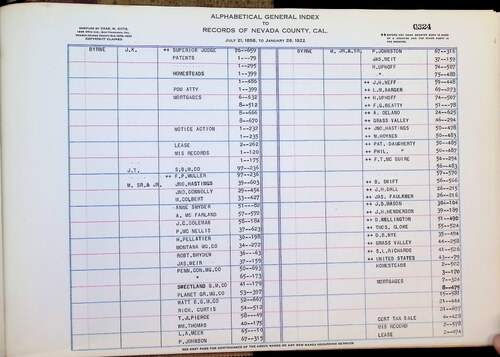 ALPHABETICAL GENERAL INDEX
TO
RECORDS OF NEVADA COUNTY, CAL.
JULY 21, 1856, TO JANUARY 28, 1922
0324
COPYRIGHT CLAIMED
BYRNE J.K. ** SUPERIOR JUDGE 96—659
PATENTS 1---79
1--295
HOMESTEADS 1--399
1--486
POW ATTY 1--399
MORTGAGES 6--632
8--512
8--666
8--670
NOTICE ACTION 1--232
1--235
LEASE 2--262
MIS RECORDS 1--120
1--175
J.T. S.B.M.CO 97--236
** F.P.MULLER 97--236
M, SR.& JR. JNO.HASTINGS 39--603
JNO.CONNOLLY 29--454
M.COLBERT 33--427
ANNE SNYDER 51---82
A. MC FARLAND 57--570
J.C.COLEMAN 56--184
P.MC NELLIS 37--623
H.PELLATIER 30--198
MONTANA MG.CO 34--272
ROBT.BRYDEN 36--63
JAS.WEIR 37--159
PENN.CON.MG.CO 50--693
" 65--173
SWEETLAND G.M.CO 41--179
PLANET GR.MG.CO 53--397
MATT R.G.M.CO 52--667
RICH. CURTIS 54--512
T.J.PIERCE 58--49
WM.THOMAS 40--175
L.A.MEEK 65--10
P.JOHNSON 67--315
BYRNE M, JR.& SR. P.JOHNSTON 67--316
JAS.WEIT 37--159
H.UPHOFF 74--507
" 75--488
** J.H.NEFF 59--448
** L.M.SANGER 69--273
** H.UPHOFF 74--507
** F.G.BEATTY 51---78
** A. DELANO 24--625
** GRASS VALLEY 46--294
** JNO.HASTINGS 50--478
** M.HOYNES 50--483
** PAT. DAUGHERTY 50--485
** PHIL. " 50--487
** F.T.MC GUIRE 54--294
56--563
57--570
** B. SWIFT 56--566
** J.H.DALL 26--215
** JAS. FAULKNER 26--216
** J.B.
** J.H.HENDERSON 39--189
** D.WELLINGTON 51--490
** THOS. GLOHE 55--524
** D.B.NYE 35--494
** GRASS VALLEY 44--258
** S.L.RICHARDS 41--526
** UNITED STATES 43--79
HOMESTEADS 2--502
3--170
MORTGAGES 7--324
8--475
CERT TAX SALE
MIS RECORD
LEASE 2--474
SEE NEXT PAGE FOR CONTINUANCE OF THE ABOVE NAMES OR ANY NEW NAMES OCCURRING BETWEEN